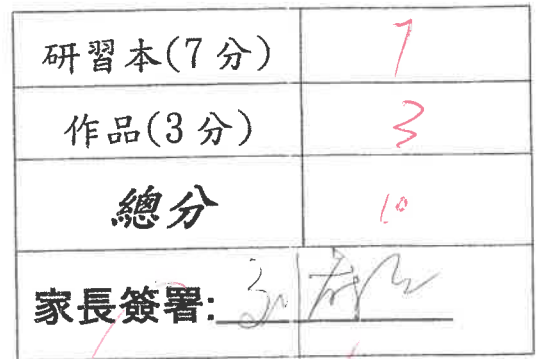 研習本(7分) 7
作品(3分) 3
總分 10
家長簽署: